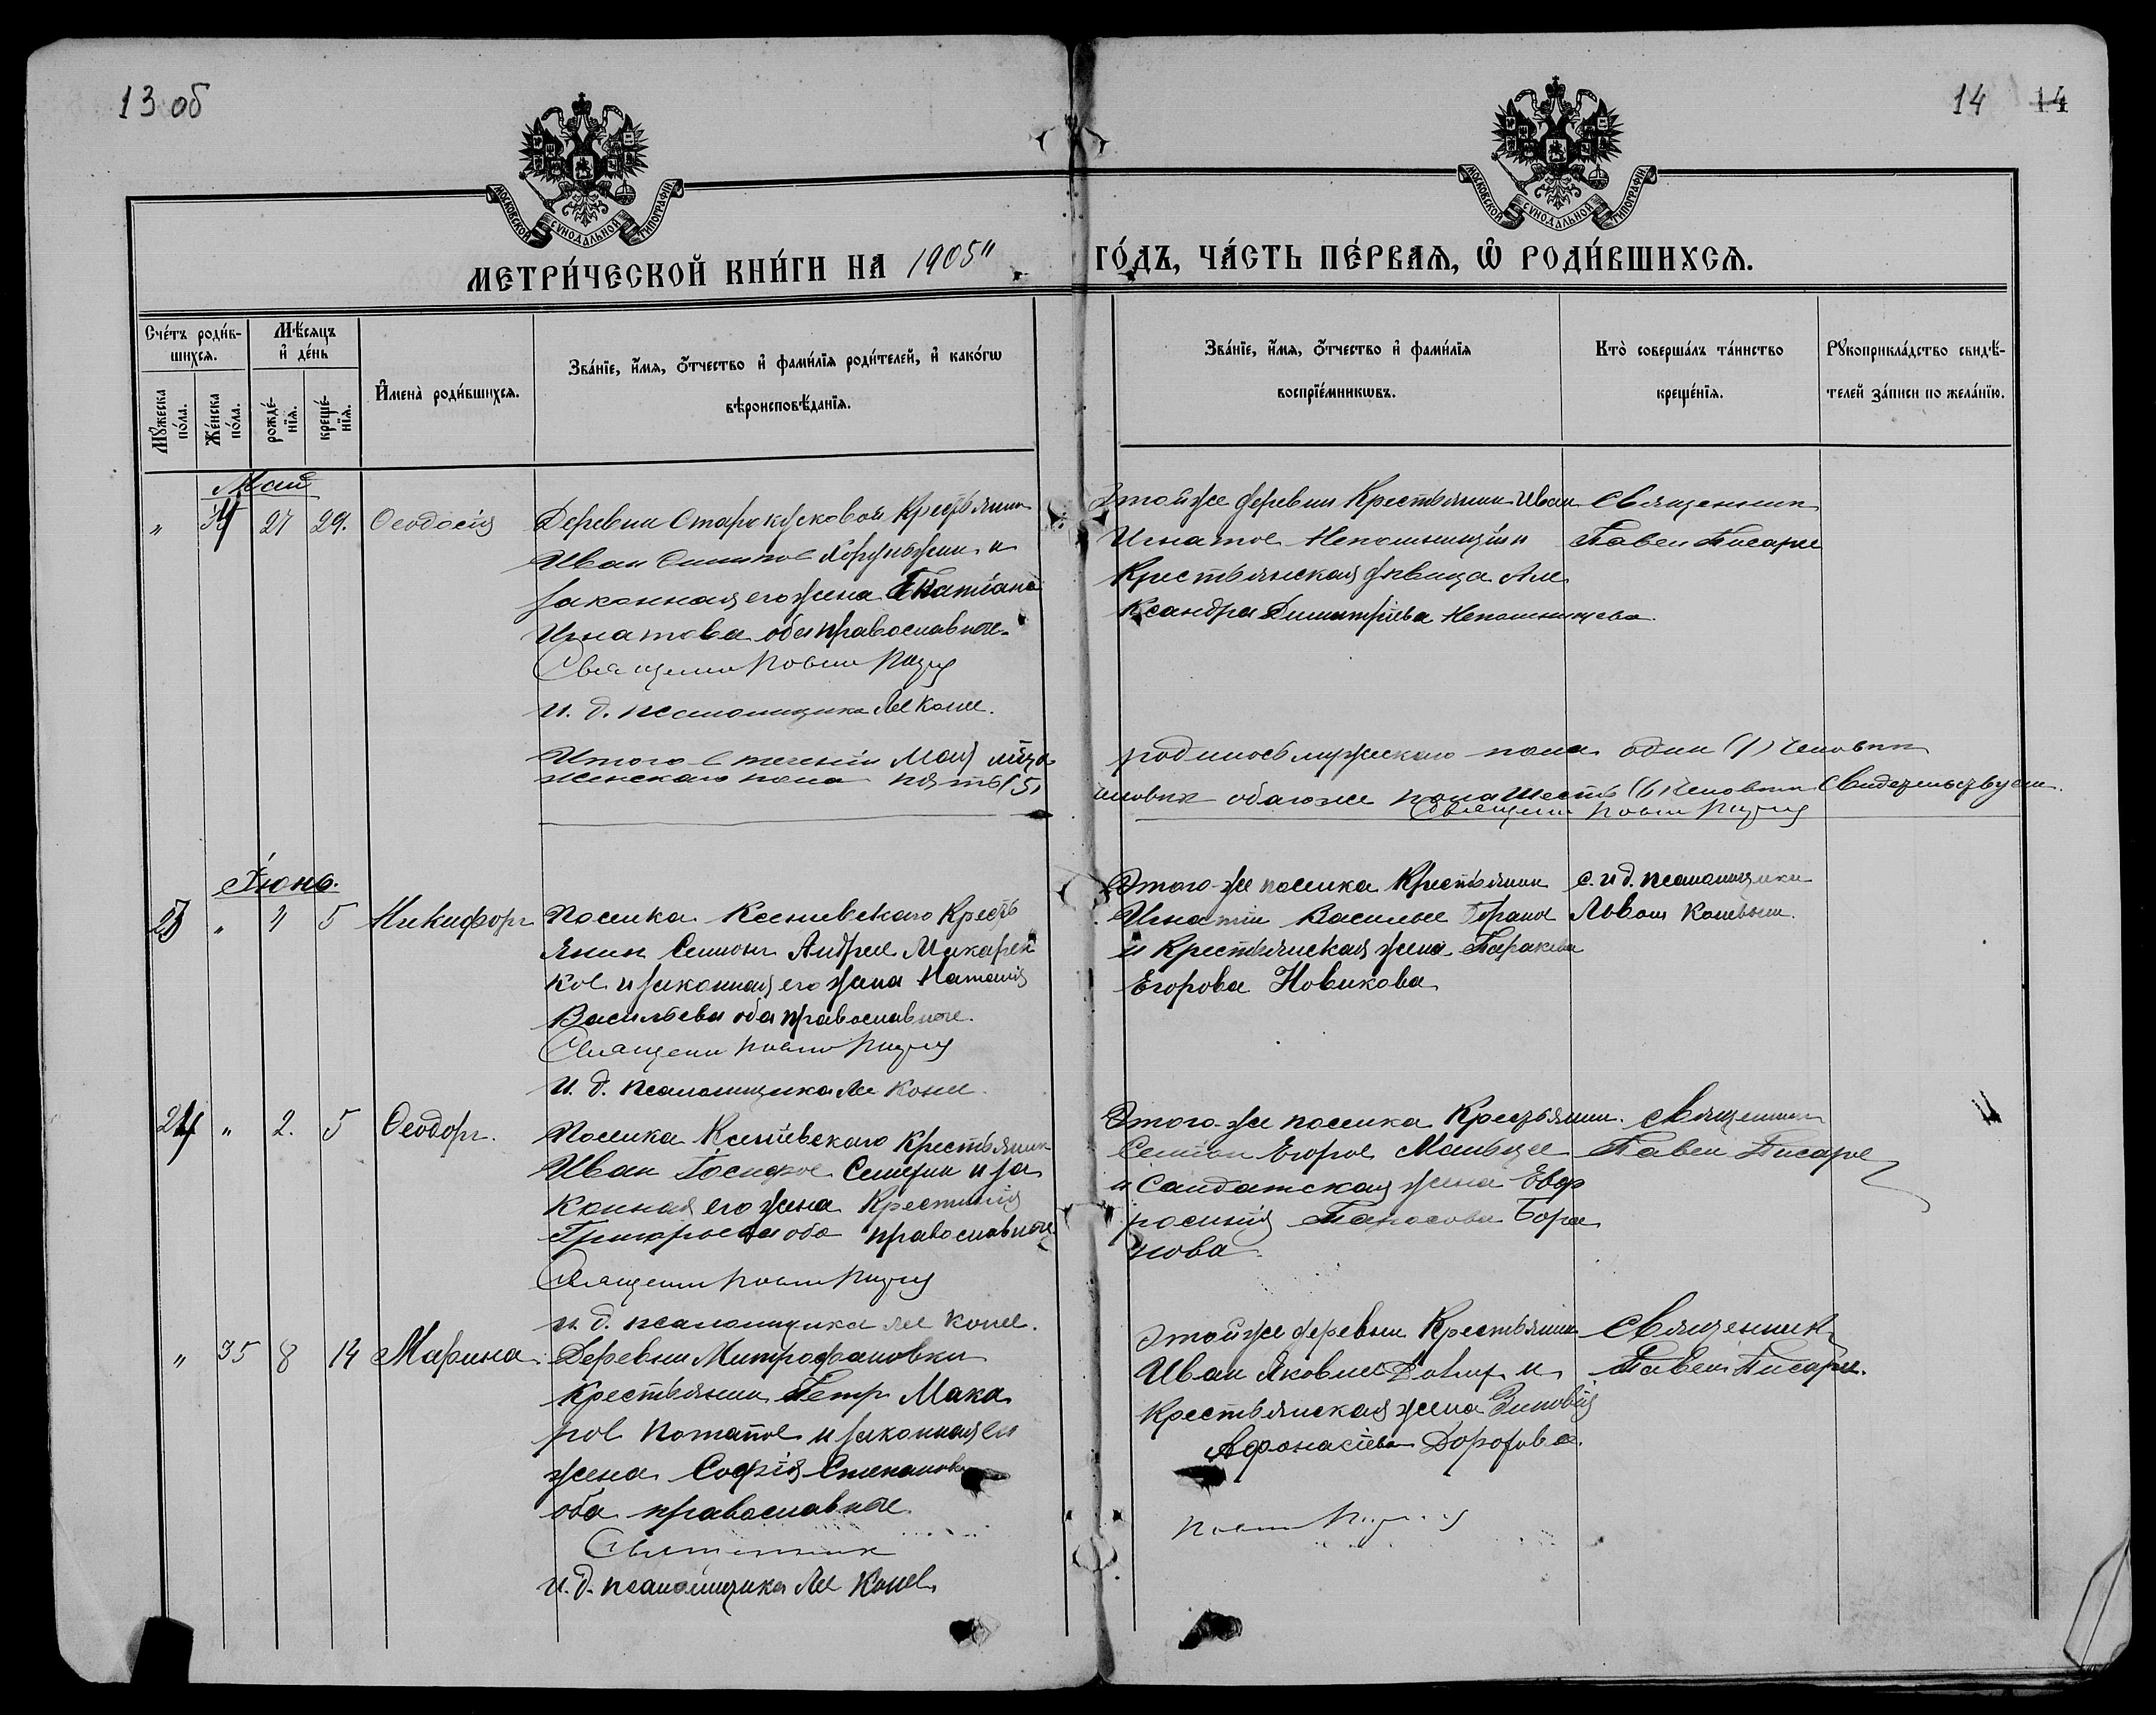 13 об
14 14
МОСКОВСКОЙ СѴНОДАЛЬНОЙ ТИПОГРАФІИ
МОСКОВСКОЙ СѴНОДАЛЬНОЙ ТИПОГРАФІИ
МЕТРИ́ЧЕСКОЙ КНИ́ГИ НА 1905
ГО́ДЪ, ЧА́СТЬ ПЕ́РВАѦ, Ѡ РОДИ́ВШИХСѦ.
Сче́тъ роди́в-
шихсѧ.
Мѣ́сѧцъ
и҆ де́нь
Мꙋ́жеска
по́ла.
Же́нска
по́ла.
рожде́-
нїѧ.
креще́-
нїѧ.
И҆мена̀ роди́вшихсѧ.
Зва́нїе, и҆́мѧ, ѻ҆́тчество и҆ фами́лїѧ роди́телей, и҆ како́гѡ
вѣроисповѣ́данїѧ.
Зва́нїе, и҆́мѧ, ѻ҆́тчество и҆ фами́лїѧ
воспрїе́мникѡвъ.
Кто̀ соверша́лъ та́инство
креще́нїѧ.
Рꙋкоприкла́дство свидѣ́-
телей за́писи по жела́нїю.
Май
" 34 27 29. Ѳеодосія
Деревни Старокусковой Крестьянин
Иван
законная его жена Татіана
Игнатова оба православные
Священник
И. д. псаломщика Лев Конев.
Этой же деревни Крестьянин Иван
Игнатов Непомнящій и
Крестьянская девица Але
ксандра Димитріева Непомнящева.
Священник
Павел Писарев
Итого в теченіи Мая м-ца
женскаго пола пять (5)
родилось мужескаго пола один (1) человек
человек обоего же пола шесть (6) человек Свидетельствуем.
Священник
Іюнь.
23 " 4 5 Никифор
Поселка Ксеньевскаго Кресть
янин Семион Андреев Макарен
ков и законная его жена Наталія
Васильева оба православные.
Священник
И. д. псаломщика Лев Конев.
Этого же поселка Крестьянин
Игнатій Васильев
и Крестьянская жена Параскева
Егорова Новикова
с. и д. псаломщика
Львом Коневым.
24 " 2. 5 Ѳеодор.
Поселка Ксеніевскаго Крестьянин
Иван Іосифов и за
конная его жена Крестинія
Григорьева оба православные
Священник
И. д. псаломщика Лев Конев.
Этого же поселка Крестьянин.
Семіон Егоров Мальцев
и Салдатская жена Евф
росинія Тарасова Бара
нова.
Священник
Павел Писарев
" 35 8 14 Марина
Деревни Митрофановки
Крестьянин Петр Мака
ров Потапов и законная его
жена Софія Степанова
оба православные
Священник
И. д. псаломщика Лев Конев
Этой же деревни Крестьянин
Иван Яковлев и
Крестьянская жена Зиновія
Афонасіева Дорофова.
Священник
Павел Писарев.